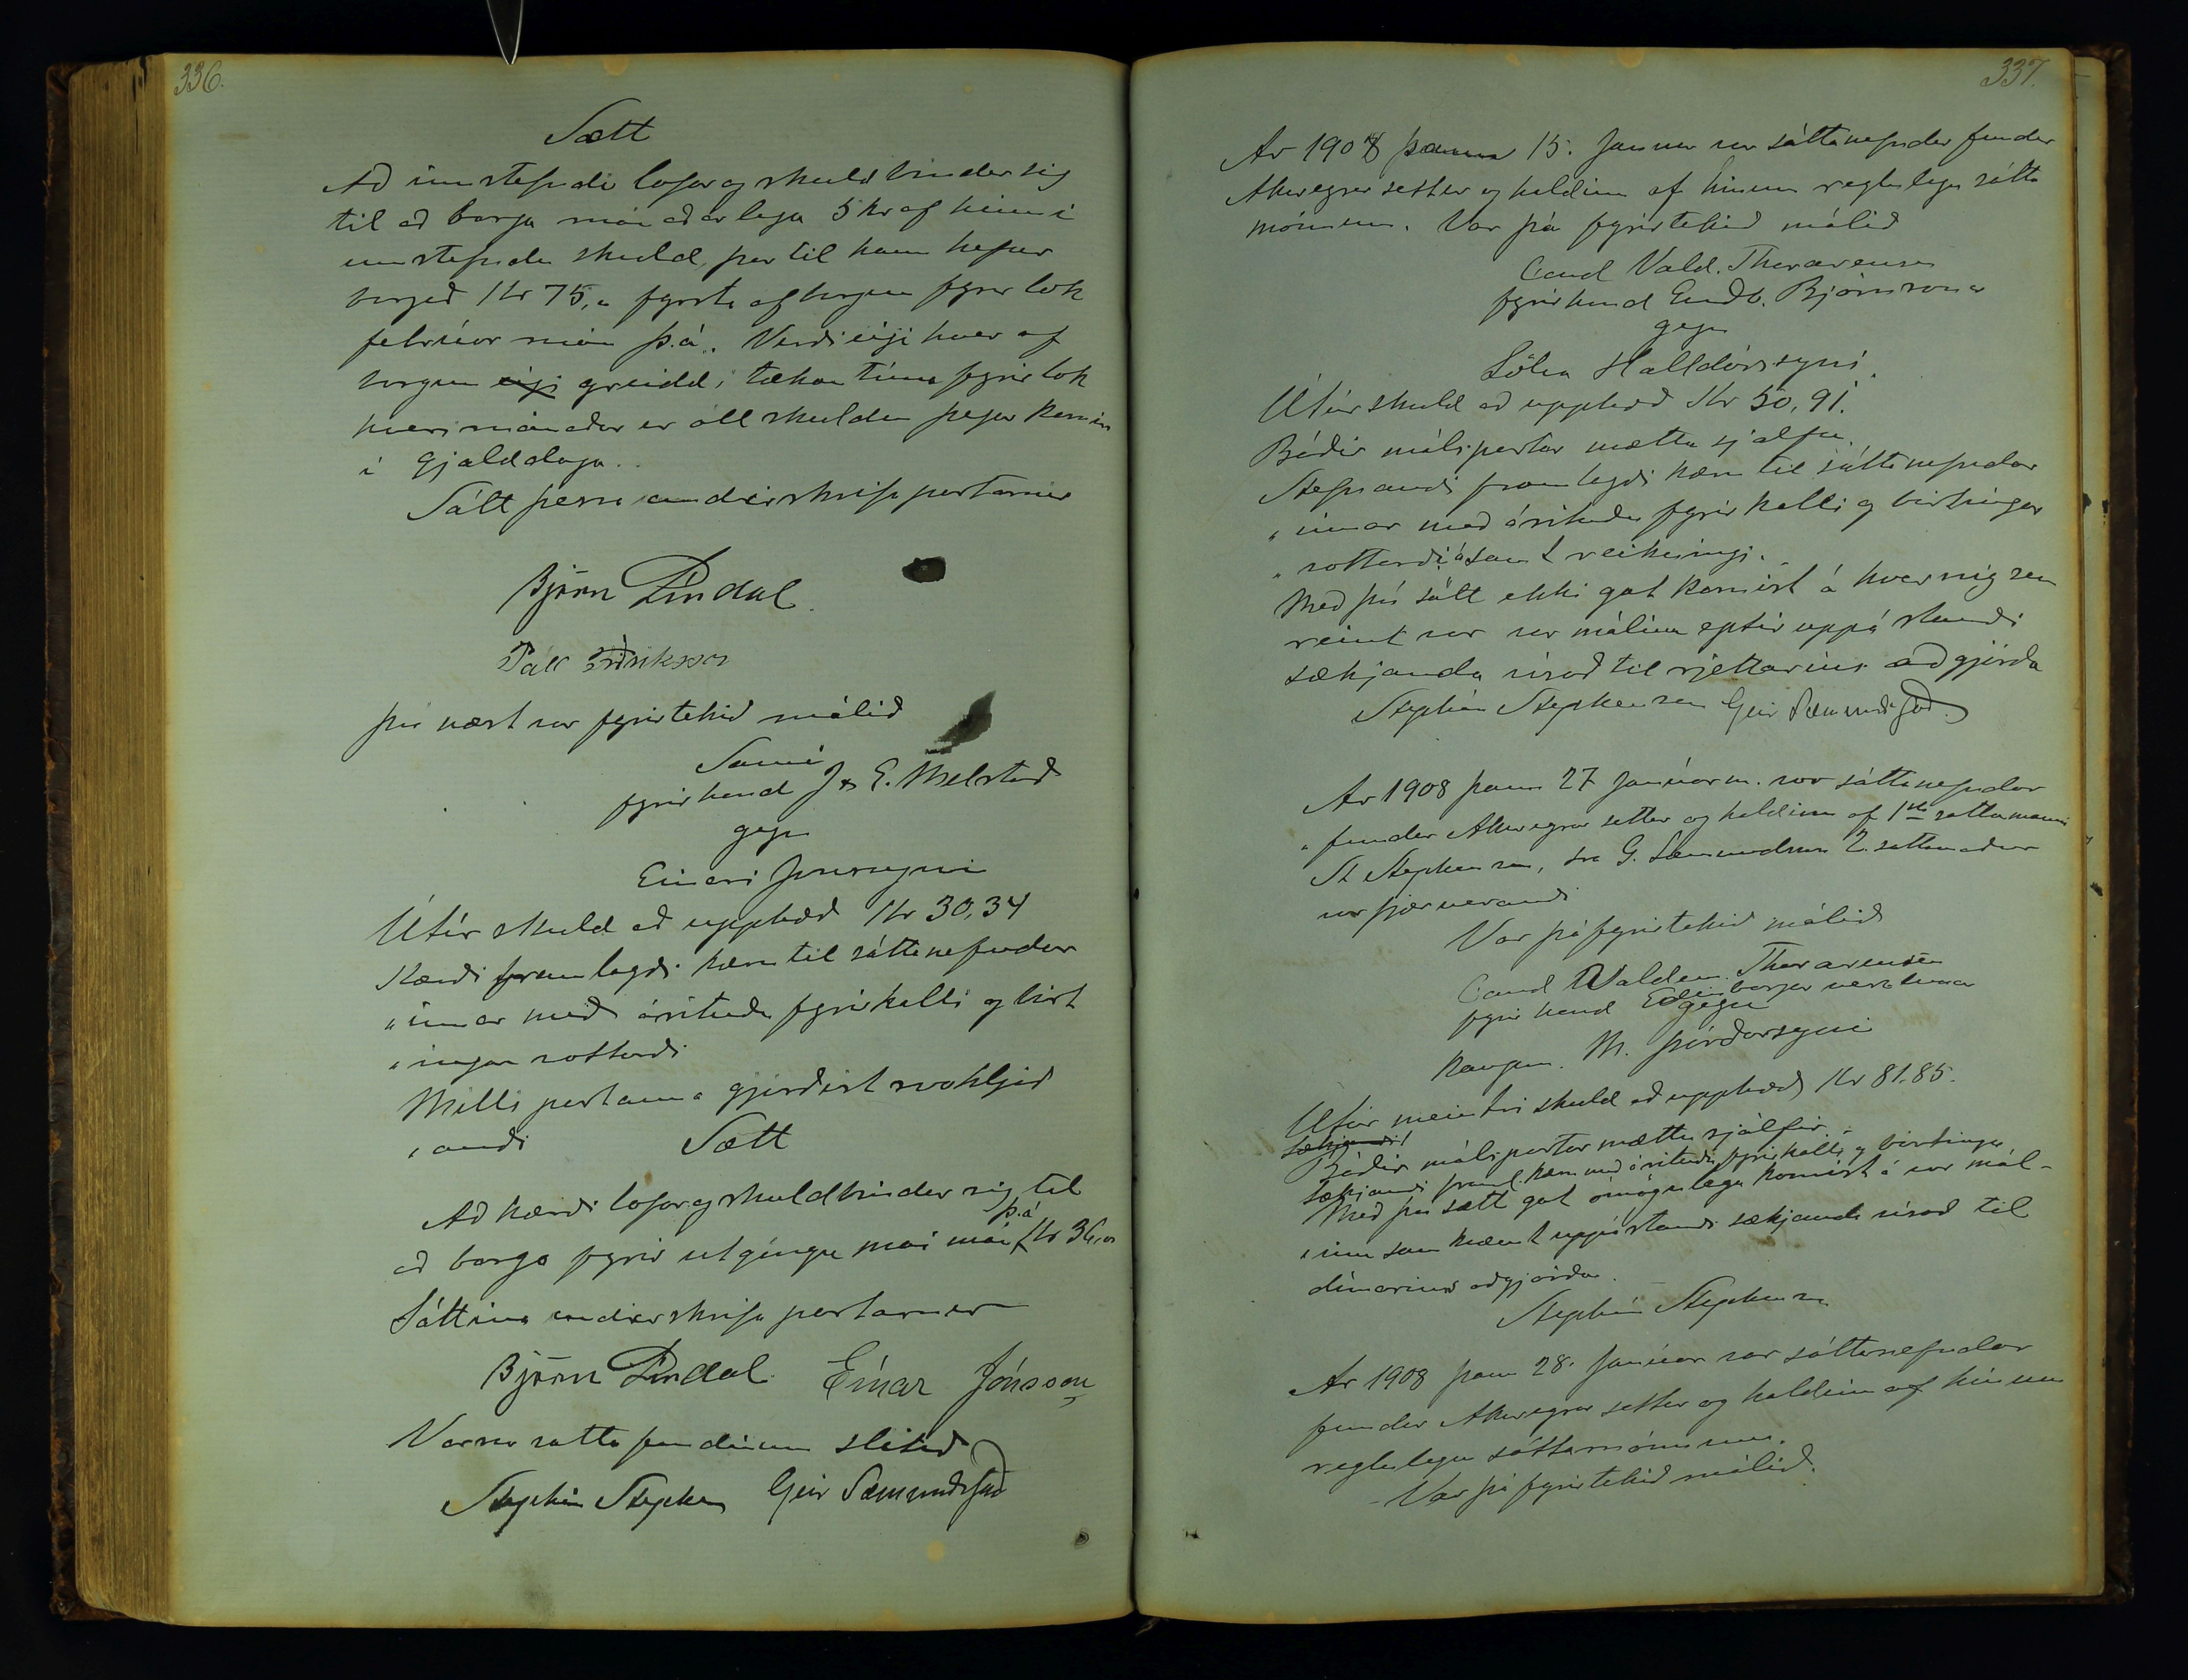 336.
Sætt
Að innstefndi lofar og skuldbindur sig
til að borga mánaðarlega 5 kr af hinni
umstefndu skuld, þar til hann hefur
borgað Kr 75,„ fyrsta afborgun fyrir lok
febrúar mán þ.á. Verði eigi hver af
borgun eigi greidd í tækan tíma fyrir lok
hvers mánaðar er öll skuldin þegar komin
í gjalddaga.
Sátt þessa undirskrifa partarnir
Björn Líndal.
Páll Friðriksson
því næst var fyrirtekið málið
Sami
fyrir hönd J. E. Melstað
gegn
Einari Jónssyni
Útúr skuld að upphæð Kr 30,34
Kærði framlagði kæru til sáttanefndar
„innar með árituðu fyrirkalli og birt
„ingar vottorði
Milli partanna gjörðist svohljóð
„andi Sætt
Að kærði lofar og skuldbindur sig til
að borga fyrir útgöngu maí mán þ.á Kr 36,00
Sáttina undirskrifa partarnir
Björn Líndal. Einar Jónsson
Var svo sátta fundinum slitið
Stephán Stephensen Geir Sæmundsson
337.
Ár 1908 þann 15. Janúar var sáttanefndar fundur
Akureyrar settur og haldinn af hinum reglulegu sátta
mönnum. Var þá fyrirtekið málið
Cand Vald. Thorarensen
fyrir hönd Guðb. Björnssonar
gegn
Sölva Halldórssyni.
Útúr skuld að upphæð Kr 50,91.
Báðir málspartar mættu sjálfir.
Stefnandi framlagði kæru til sáttanefndar
„innar með árituðu fyrirkalli og birtingar
„vottorði ásamt reikningi.
Með því sátt ekki gat komist á hvernig sem
reynt var var málinu eptir uppástandi
sækjanda vísað til rjettarins aðgjörða
Stephán Stephensen Geir Sæmundsson
Ár 1908 þann 27 Janúarm. var sáttanefndar
„fundur Akureyrar settur og haldinn af 1sta sáttamanni
St Stephensen, sra G. Sæmundsson 2. sáttamaður
var fjærverandi
Var þá fyrirtekið málið
Cand Valdem. Thorarensen
fyrir hönd Edinborgar verzlunar
gegn
Kaupm. M. Þórðarsyni
Útúr meintri skuld að upphæð Kr 81.85.
Sækjandi
Báðir málspartar mættu sjálfir.
Sækjandi framl. kæru með árituðu fyrirkalli og birtingu
Með því sætt gat ómögulega komist á var mál-
„inu samkvæmt uppástandi sækjanda vísað til
dómarans aðgjörða.
Stephán Stephensen
Ár 1908 þann 28. Janúar var sáttanefndar
fundur Akureyrar settur og haldinn af hinum
reglulegu sáttamönnum.
- Var þá fyrirtekið málið.